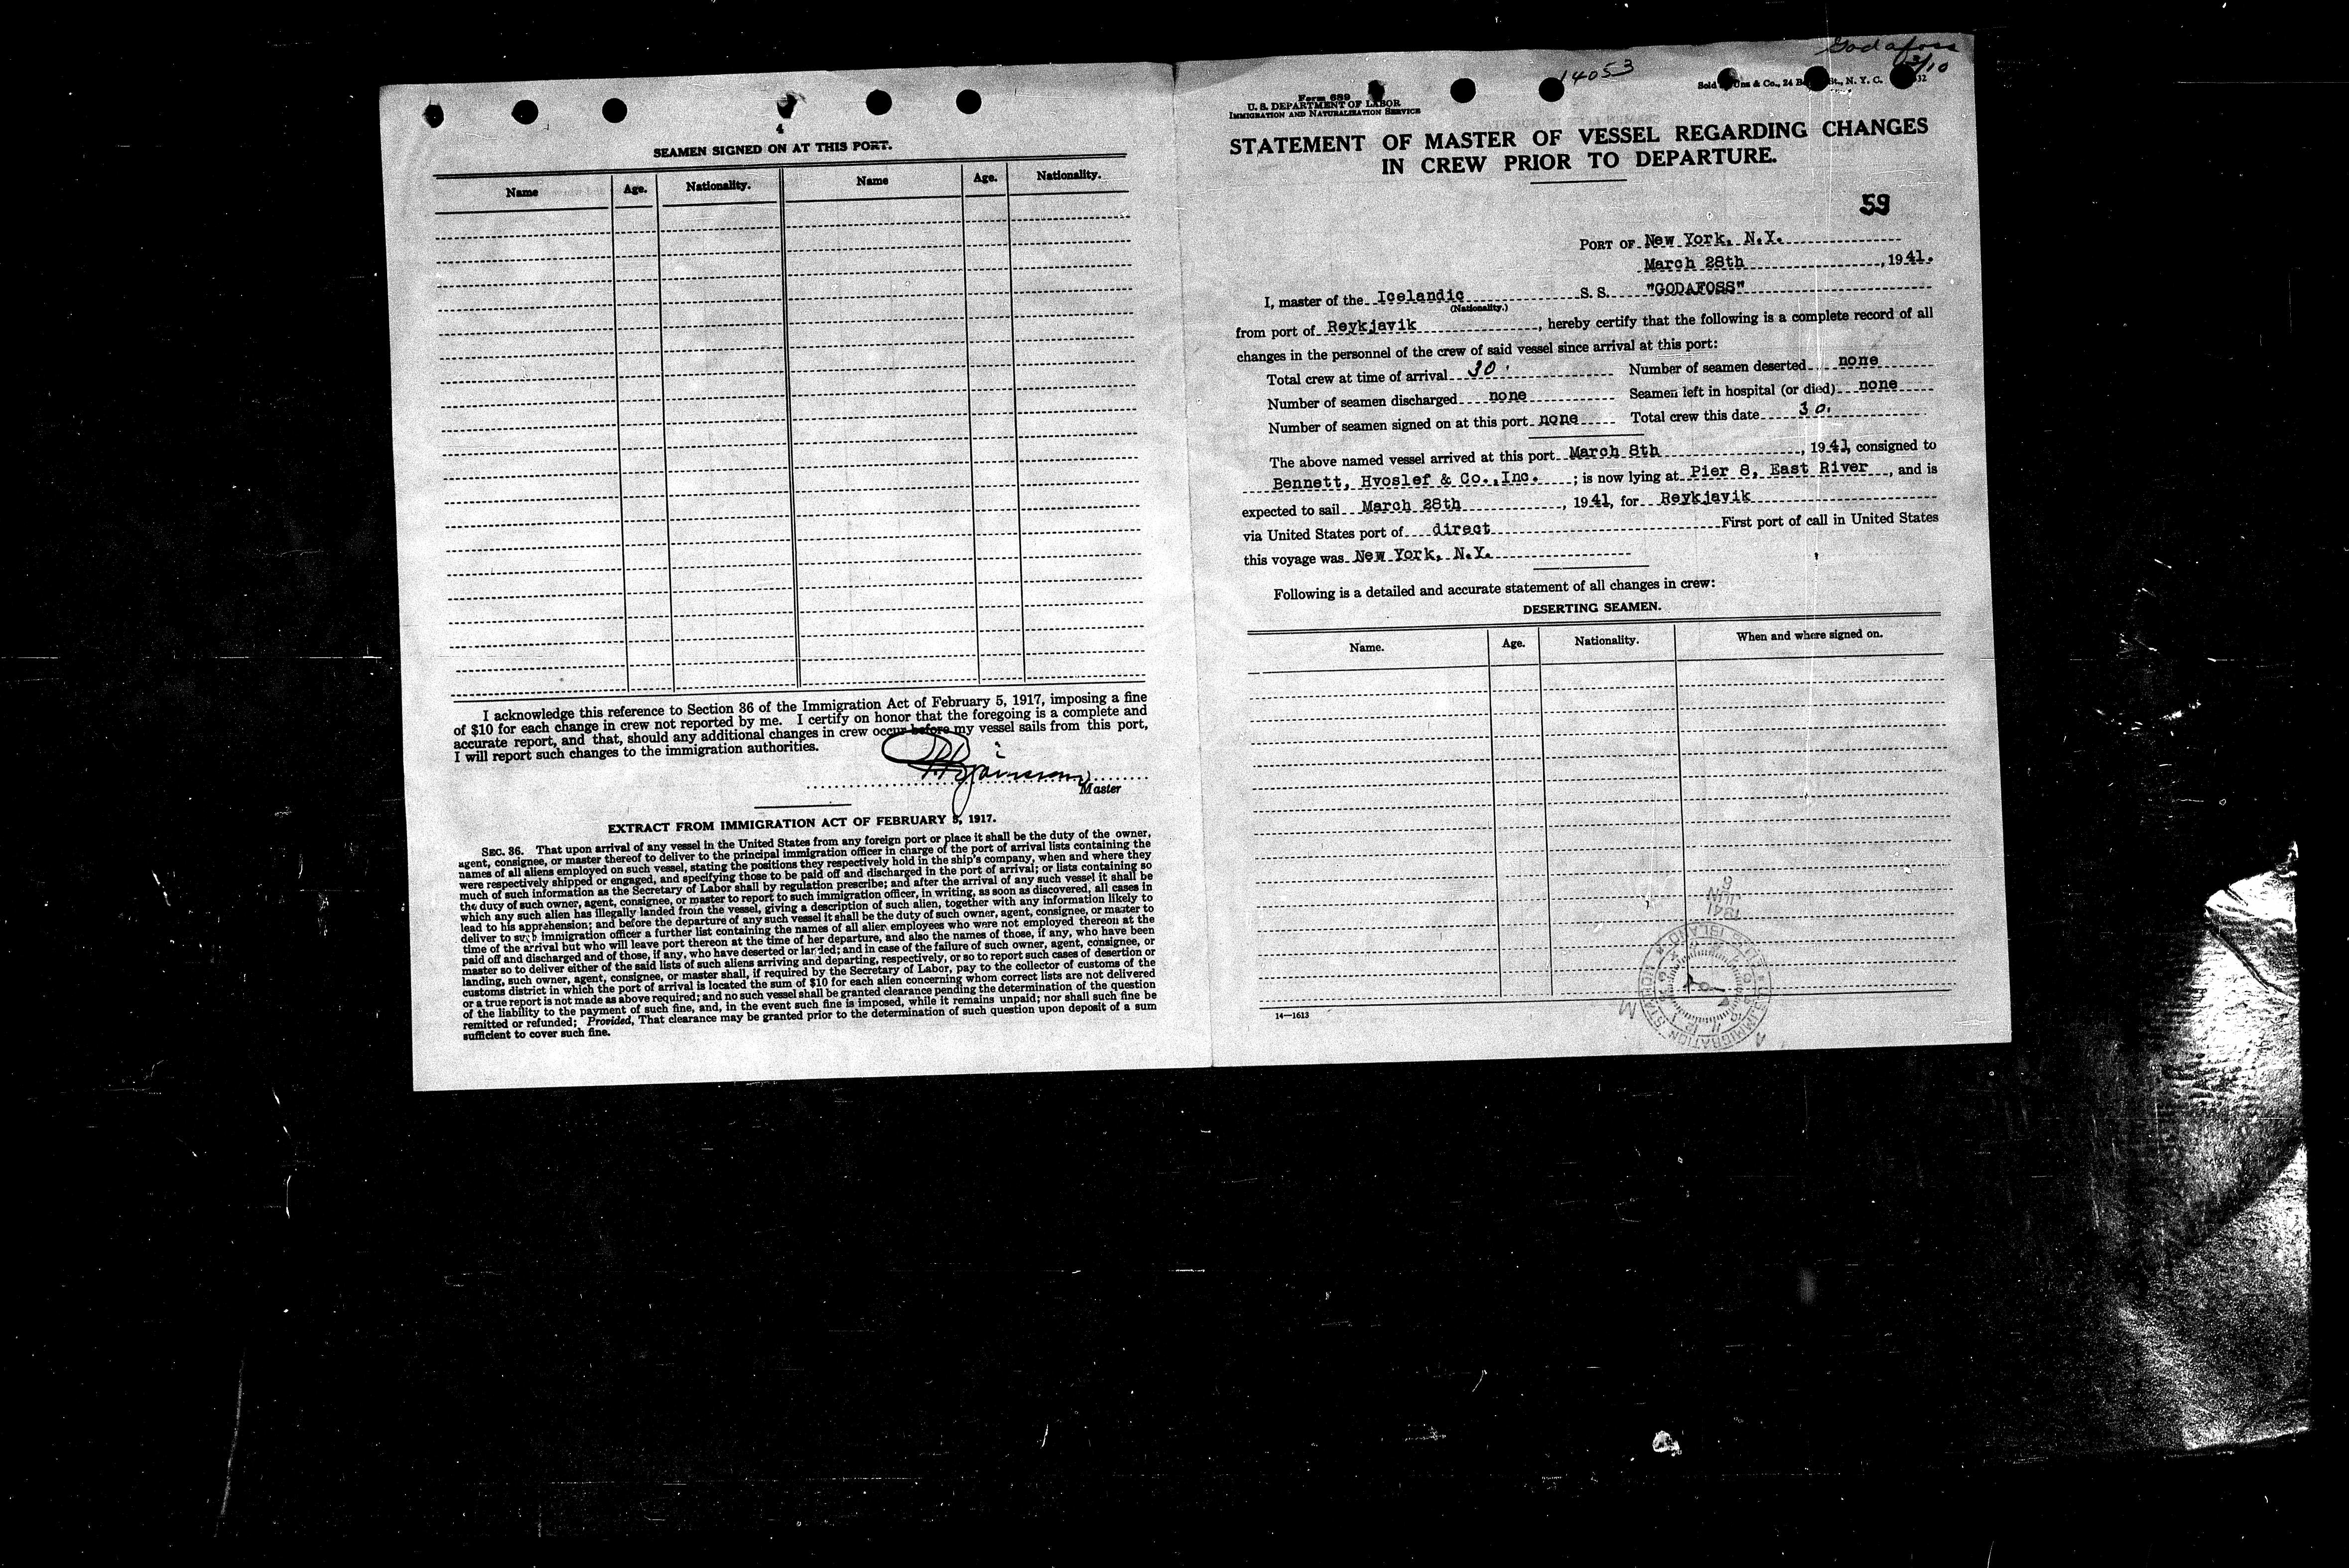 4
SEAMEN SIGNED ON AT THIS PORT.
Name Age. Nationality. Name Age. Nationality.
I acknowledge this reference to Section 36 of the Immigration Act of February 5, 1917, imposing a fine
of $10 for each change in crew not reported by me. I certify on honor that the foregoing is a complete and
accurate report, and that, should any additional changes in crew occur before my vessel sails from this port,
I will report such changes to the immigration authorities.
Master
EXTRACT FROM IMMIGRATION ACT OF FEBRUARY 5, 1917.
SEC. 36. That upon arrival of any vessel in the United States from any foreign port or place it shall be the duty of the owner,
agent, consignee, or master thereof to deliver to the principal immigration officer in charge of the port of arrival lists containing the
names of all aliens employed on such vessel, stating the positions they respectively hold in the ship's company, when and where they
were respectively shipped or engaged, and specifying those to be paid off and discharged in the port of arrival; or lists containing so
much of such information as the Secretary of Labor shall by regulation prescribe; and after the arrival of any such vessel it shall be
the duty of such owner, agent, consignee, or master to report to such immigration officer, in writing, as soon as discovered, all cases in
which any such alien has illegally landed from the vessel, giving a description of such alien, together with any information likely to
lead to his apprehension; and before the departure of any such vessel it shall be the duty of such owner, agent, consignee, or master to
deliver to such immigration officer a further list containing the names of all alien employees who were not employed thereon at the
time of the arrival but who will leave port thereon at the time of her departure, and also the names of those, if any, who have been
paid off and discharged and of those, if any, who have deserted or landed; and in case of the failure of such owner, agent, consignee, or
master so to deliver either of the said lists of such aliens arriving and departing, respectively, or so to report such cases of desertion or
landing, such owner, agent, consignee, or master shall, if required by the Secretary of Labor, pay to the collector of customs of the
customs district in which the port of arrival is located the sum of $10 for each alien concerning whom correct lists are not delivered
or a true report is not made as above required; and no such vessel shall be granted clearance pending the determination of the question
of the liability to the payment of such fine, and, in the event such fine is imposed, while it remains unpaid; nor shall such fine be
remitted or refunded; Provided, That clearance may be granted prior to the determination of such question upon deposit of a sum
sufficient to cover such fine.
Godafoss
3/10
14053
Form 689
U. S. DEPARTMENT OF LABOR
IMMIGRATION AND NATURALIZATION SERVICE
Sold & Co., 24 St., N. Y. C.
STATEMENT OF MASTER OF VESSEL REGARDING CHANGES
IN CREW PRIOR TO DEPARTURE.
59
PORT OF New York, N.Y.
March 28th, 1941.
I, master of the Icelandic S. S. "GODAFOSS"
(Nationality.)
from port of Reykjavik, hereby certify that the following is a complete record of all
changes in the personnel of the crew of said vessel since arrival at this port:
Total crew at time of arrival 30 Number of seamen deserted none
Number of seamen discharged none Seamen left in hospital (or died) none
Number of seamen signed on at this port none Total crew this date 30.
The above named vessel arrived at this port March 8th, 1941, consigned to
Bennett, Hvoslef & Co., Inc. ; is now lying at Pier 8, East River, and is
expected to sail March 28th, 1941, for Reykjavik
via United States port of direct First port of call in United States
this voyage was New York, N.Y.
Following is a detailed and accurate statement of all changes in crew:
DESERTING SEAMEN.
Name. Age. Nationality. When and where signed on.
1941
JUN
9
14—1613